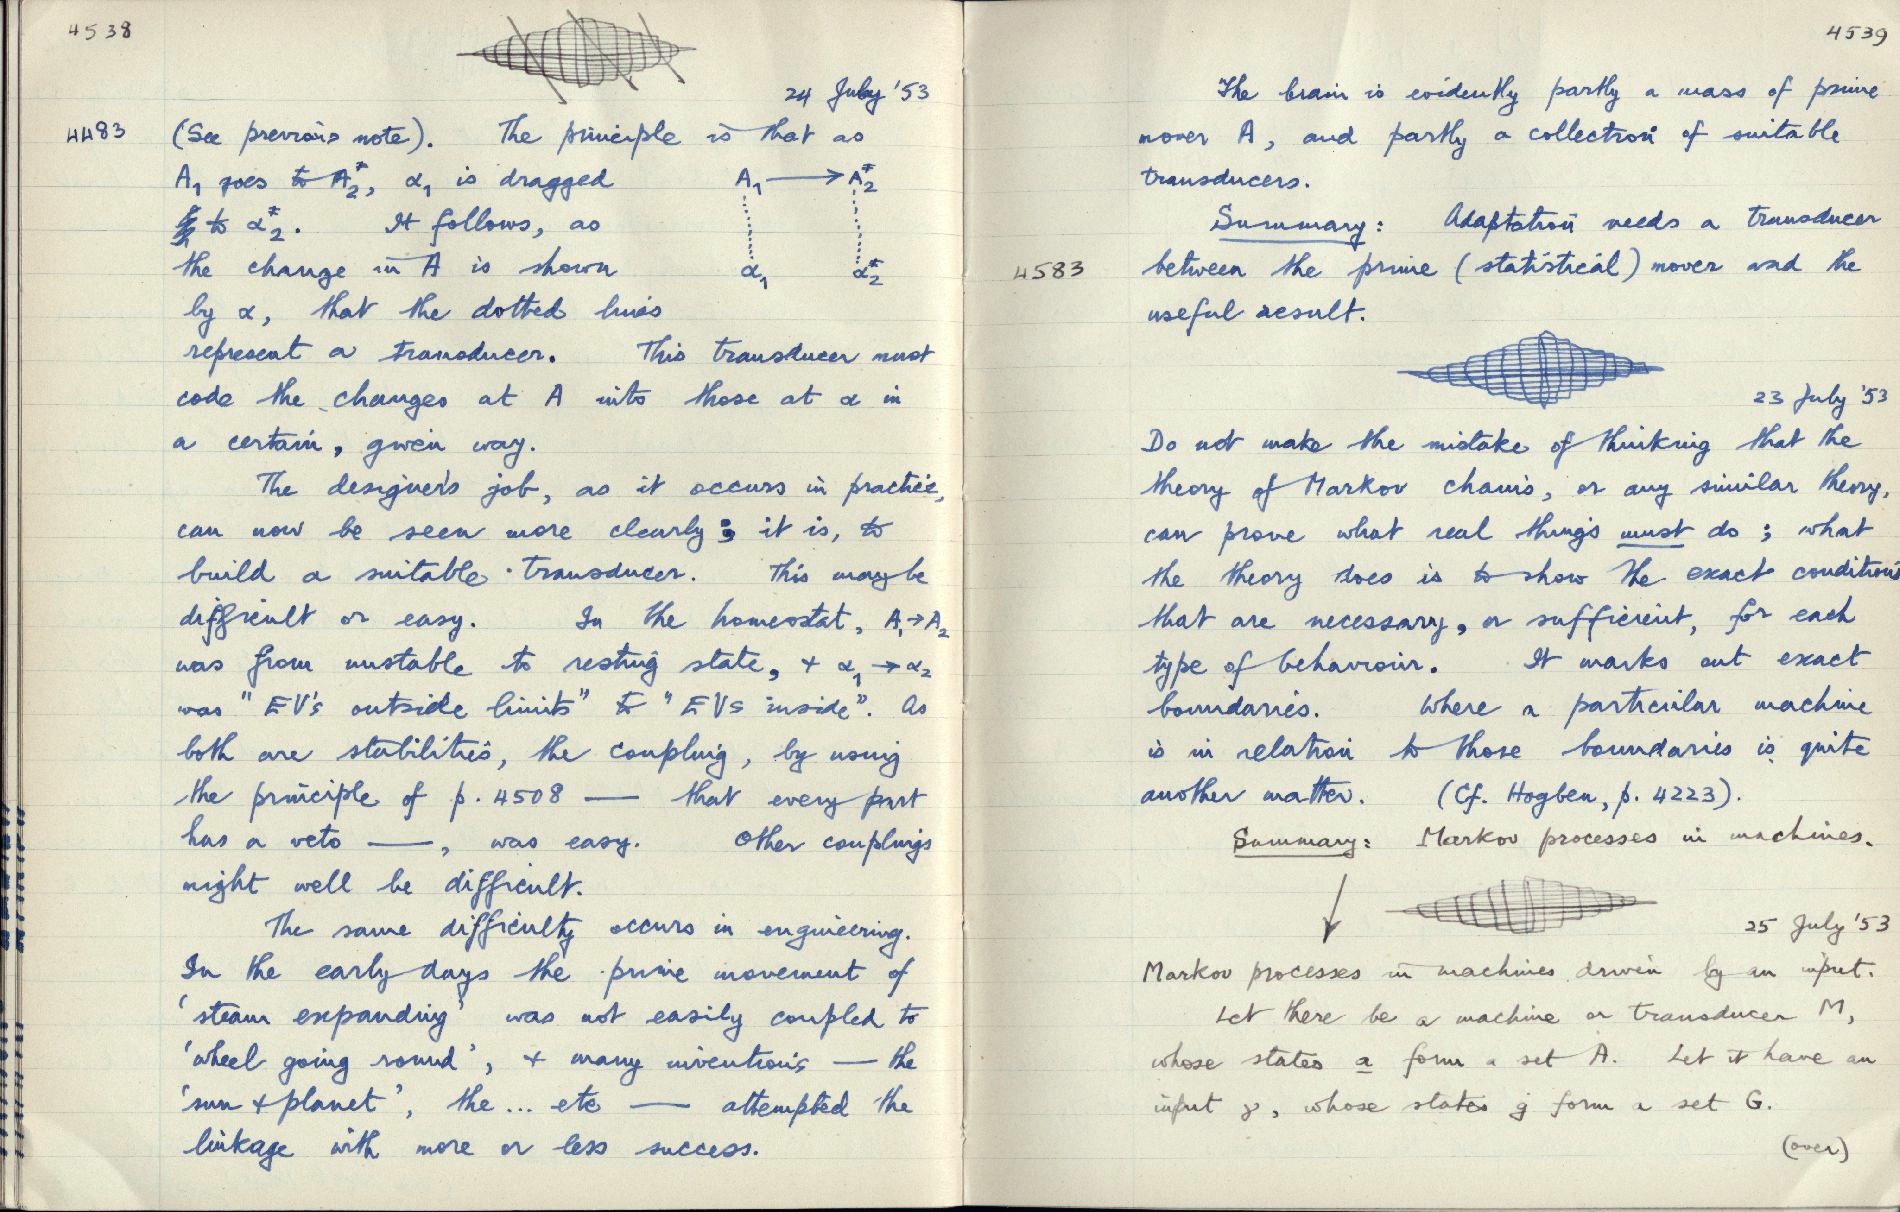 4538
24 July '53
4483 (See previous note). The principle is that as
A₁ goes to A₂*, α₁ is dragged
to α₂*. It follows, as
the change in A is shown
by α, that the dotted lines
A₁ → A₂*
α₁ α₂*
represent a transducer. This transducer must
code the changes at A into those at α in
a certain, given way.
The designer's job, as it occurs in practice,
can now be seen more clearly; it is, to
build a suitable transducer. This may be
difficult or easy. In the homeostat, A₁→A₂
was from unstable to resting state, + α₁→α₂
was "EV's outside limits" to "EVs inside". As
both are stabilities, the coupling, by using
the principle of p. 4508 — that every part
has a veto —, was easy. Other couplings
might well be difficult.
The same difficulty occurs in engineering.
In the early days the prime movement of
'steam expanding' was not easily coupled to
'wheel going round', + many inventions — the
'sun + planet', the ... etc — attempted the
linkage with more or less success.
4539
The brain is evidently partly a mass of prime
mover A, and partly a collection of suitable
transducers.
Summary: Adaptation needs a transducer
4583 between the prime (statistical) mover and the
useful result.
23 July '53
Do not make the mistake of thinking that the
theory of Markov chains, or any similar theory,
can prove what real things must do; what
the theory does is to show the exact conditions
that are necessary, or sufficient, for each
type of behaviour. It marks out exact
boundaries. Where a particular machine
is in relation to those boundaries is quite
another matter. (Cf. Hogben, p. 4223).
Summary: Markov processes in machines.
25 July '53
Markov processes in machines driven by an input.
Let there be a machine or transducer M,
whose states a form a set A. Let it have an
input γ, whose states g form a set G.
(over)